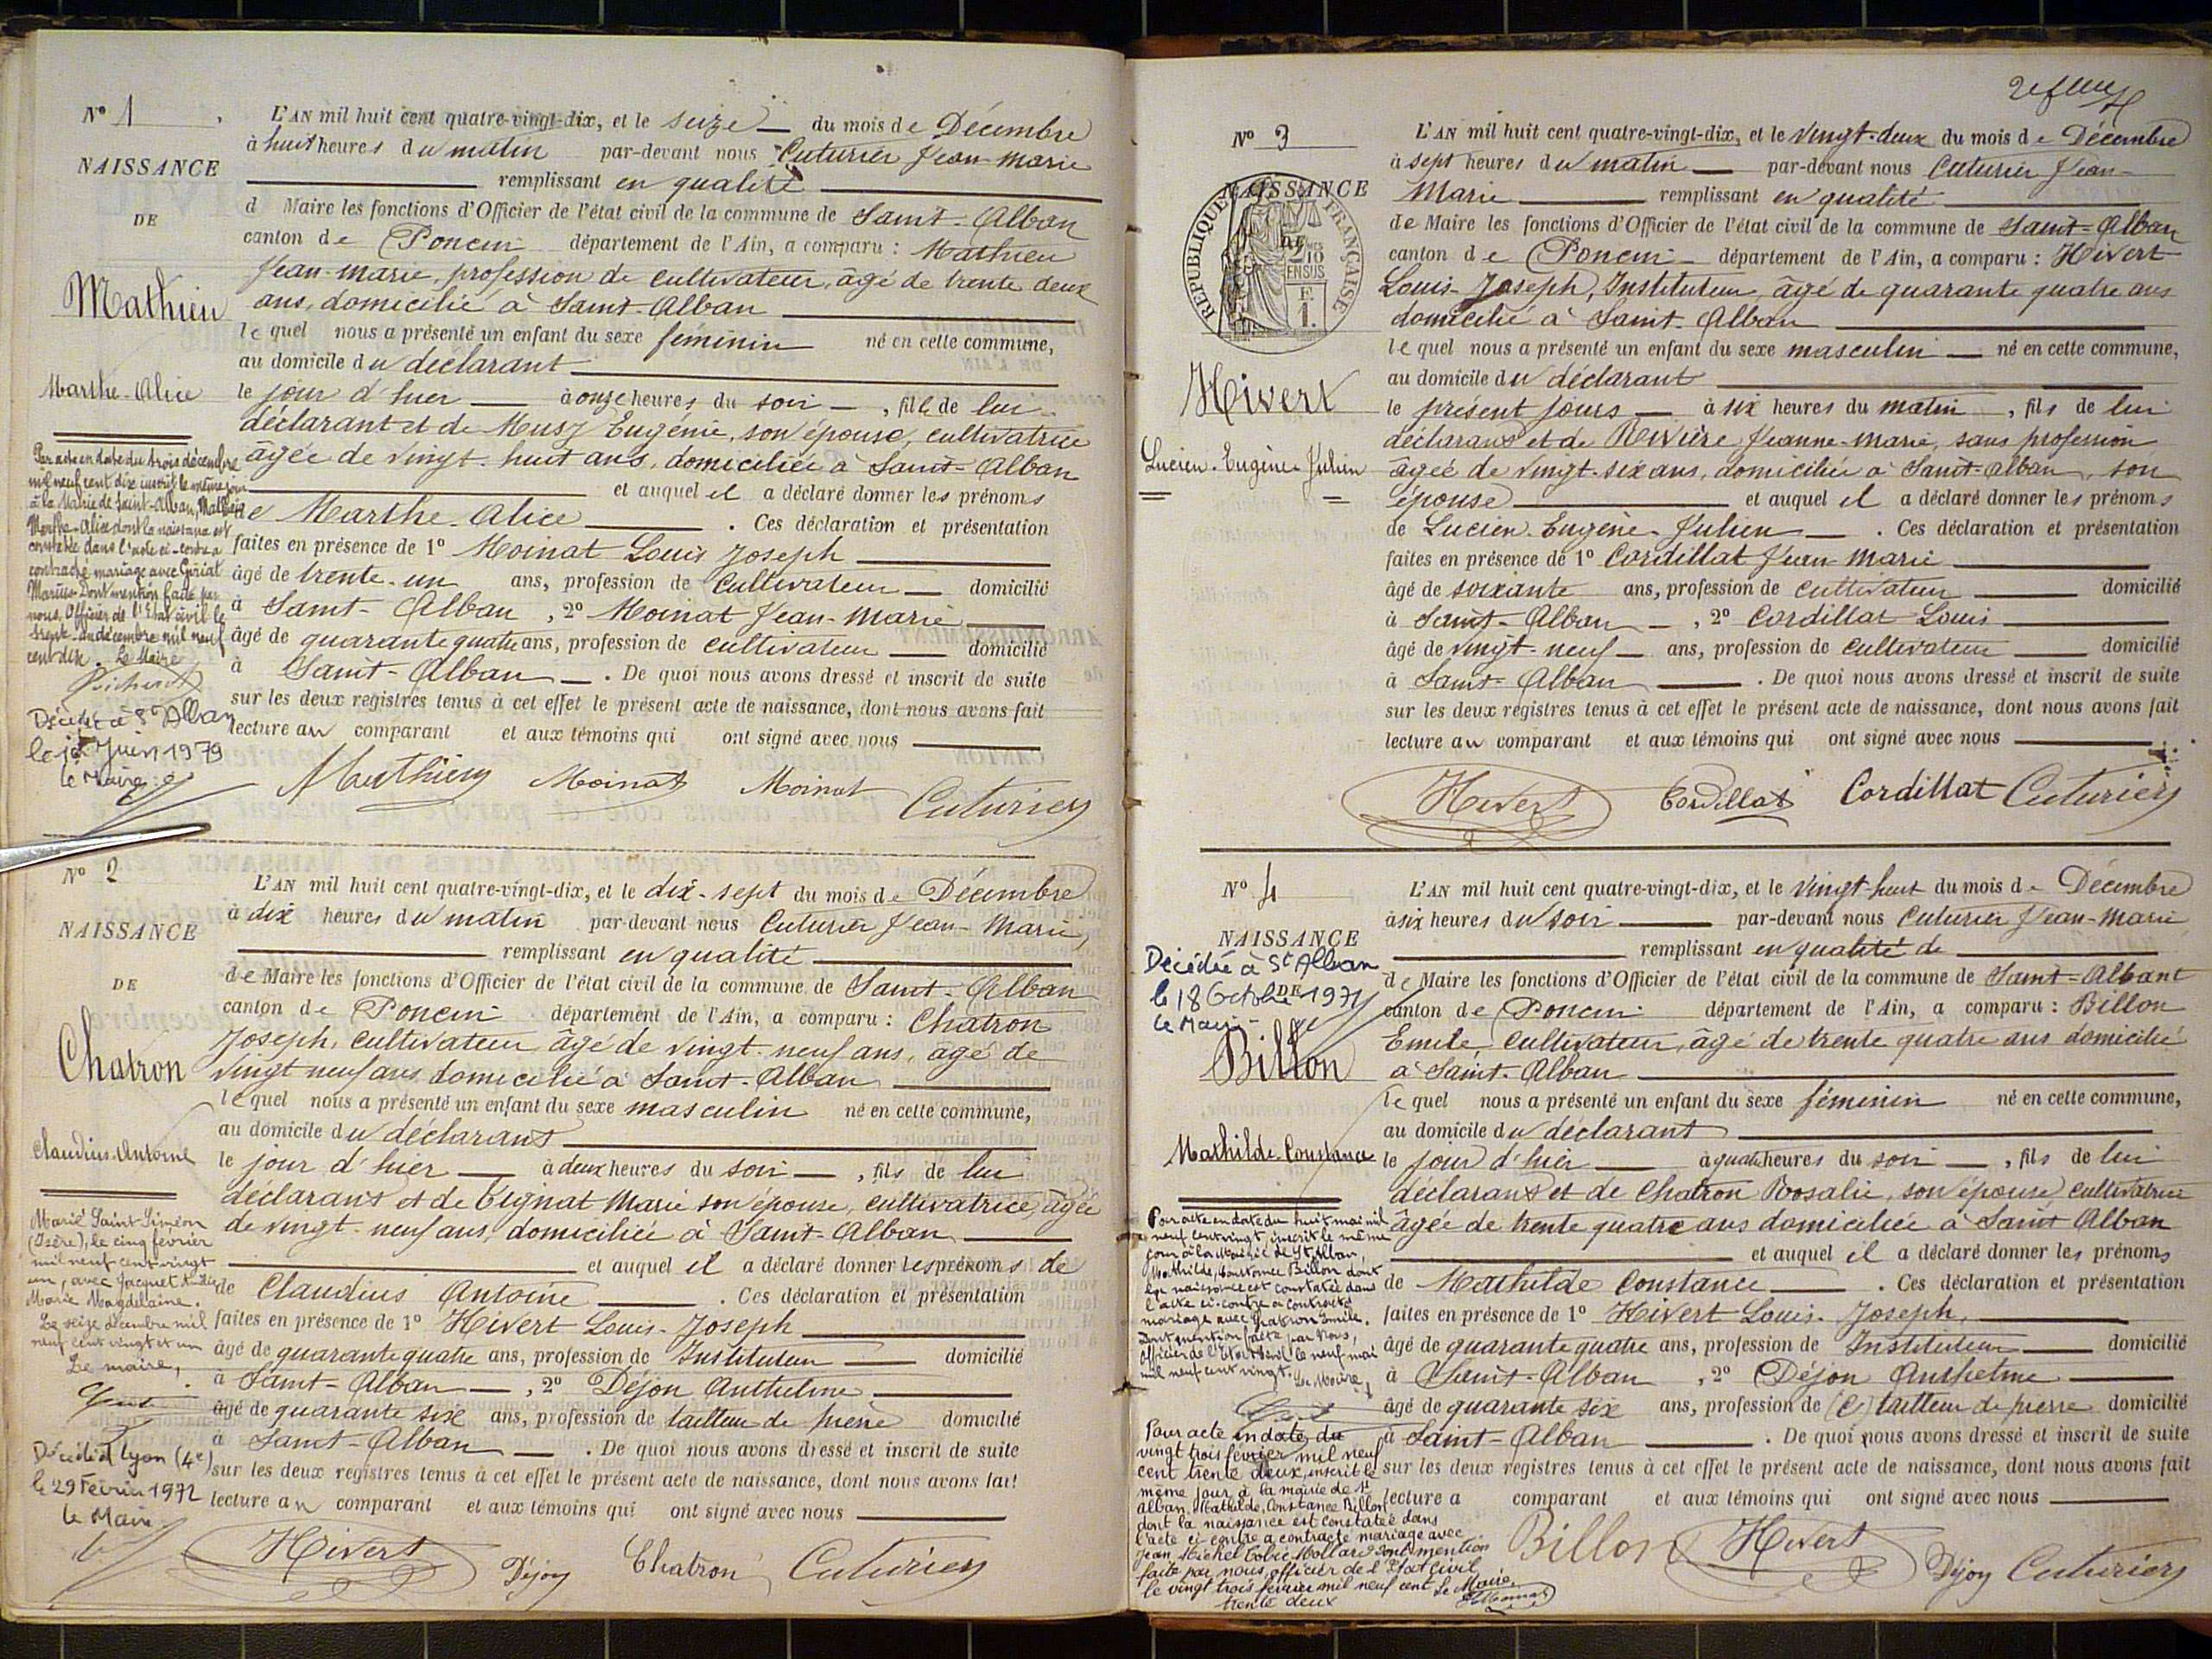 Nº 1
NAISSANCE
DE
Mathieu
Marthe-Alice
L'AN mil huit cent quatre-vingt-dix, et le seize du mois de Décembre
à huit heures du matin par-devant nous Cuturier Jean-Marie
remplissant en qualité
d Maire les fonctions d'Officier de l'état civil de la commune de Saint-Alban
canton de Poncin département de l'Ain, a comparu : Mathieu
Jean-Marie, profession de cultivateur, âgé de trente deux
ans, domicilié à Saint-Alban
lequel nous a présenté un enfant du sexe féminin né en cette commune,
au domicile du déclarant
le jour d'hier à onze heures du soir, fille de lui
déclarant et de Musy Eugénie, son épouse, cultivatrice
âgée de vingt-huit ans, domiciliée à Saint-Alban
et auquel il a déclaré donner les prénoms
de Marthe-Alice. Ces déclaration et présentation
faites en présence de 1º Moinat Louis Joseph
âgé de trente-un ans, profession de cultivateur domicilié
à Saint-Alban, 2º Moinat Jean-Marie
âgé de quarante quatre ans, profession de cultivateur domicilié
à Saint-Alban. De quoi nous avons dressé et inscrit de suite
sur les deux registres tenus à cet effet le présent acte de naissance, dont nous avons fait
lecture au comparant et aux témoins qui ont signé avec nous
Mathieu Moinat Moinat Cuturier
Par acte en date du trois décembre
mil neuf cent dix inscrit le même jour
à la Mairie de Saint-Alban, Mathieu
Marthe-Alice dont la naissance est
constatée dans l'acte ci-contre a
contracté mariage avec
Marius. Dont mention faite par
nous, Officier de l'Etat civil le
décembre mil neuf
cent dix. Le Maire
Décédée à St Alban
le Juin 1979
le Maire
Nº 2
NAISSANCE
DE
Chatron
Claudius-Antoine
L'AN mil huit cent quatre-vingt-dix, et le dix-sept du mois de Décembre
à dix heures du matin par-devant nous Cuturier Jean-Marie,
remplissant en qualité
de Maire les fonctions d'Officier de l'état civil de la commune de Saint-Alban
canton de Poncin département de l'Ain, a comparu : Chatron
Joseph, cultivateur, âgé de vingt-neuf ans, âgé de
vingt neuf ans domicilié à Saint-Alban
lequel nous a présenté un enfant du sexe masculin né en cette commune,
au domicile du déclarant
le jour d'hier à deux heures du soir, fils de lui
déclarant et de Tignat Marie son épouse, cultivatrice, âgée
de vingt-neuf ans, domiciliée à Saint-Alban
et auquel il a déclaré donner les prénoms de
de Claudius Antoine. Ces déclaration et présentation
faites en présence de 1º Hivert Louis-Joseph
âgé de quarante quatre ans, profession de Instituteur domicilié
à Saint-Alban, 2º Déjon Anthelme
âgé de quarante six ans, profession de tailleur de pierre domicilié
à Saint-Alban. De quoi nous avons dressé et inscrit de suite
sur les deux registres tenus à cet effet le présent acte de naissance, dont nous avons fait
lecture au comparant et aux témoins qui ont signé avec nous
Hivert Déjon Chatron Cuturier
Marié Saint Siméon
(Isère), le cinq février
mil neuf cent vingt
un, avec Jacquet
Marie Magdelaine.
Le seize décembre mil
neuf cent vingt et un
Le maire,
Décédé à Lyon (4e)
le 29 Février 1972
le Maire
Nº 3
NAISSANCE
DE
RÉPUBLIQUE FRANÇAISE
2/10
EN SUS
F.
1.
Hivert
Lucien-Eugène-Julien
L'AN mil huit cent quatre-vingt-dix, et le vingt-deux du mois de Décembre
à sept heures du matin par-devant nous Cuturier Jean-
Marie remplissant en qualité
de Maire les fonctions d'Officier de l'état civil de la commune de Saint-Alban
canton de Poncin département de l'Ain, a comparu : Hivert
Louis-Joseph, Instituteur, âgé de quarante quatre ans
domicilié à Saint-Alban
lequel nous a présenté un enfant du sexe masculin né en cette commune,
au domicile du déclarant
le présent jours à six heures du matin, fils de lui
déclarant et de Rivière Jeanne-Marie, sans profession
âgée de vingt-six ans, domiciliée à Saint-Alban, son
épouse et auquel il a déclaré donner les prénoms
de Lucien-Eugène-Julien. Ces déclaration et présentation
faites en présence de 1º Cordillat Jean Marie
âgé de soixante ans, profession de cultivateur domicilié
à Saint-Alban, 2º Cordillat Louis
âgé de vingt-neuf ans, profession de cultivateur domicilié
à Saint-Alban. De quoi nous avons dressé et inscrit de suite
sur les deux registres tenus à cet effet le présent acte de naissance, dont nous avons fait
lecture au comparant et aux témoins qui ont signé avec nous
Hivert Cordillat Cordillat Cuturier
Nº 4
NAISSANCE
DE
Décédée à St Alban
le 18 Octobre 1971
le Maire
Billon
Mathilde-Constance
L'AN mil huit cent quatre-vingt-dix, et le vingt-huit du mois de Décembre
à six heures du soir par-devant nous Cuturier Jean-Marie
remplissant en qualité de
de Maire les fonctions d'Officier de l'état civil de la commune de Saint-Albant
canton de Poncin département de l'Ain, a comparu : Billon
Emile, cultivateur, âgé de trente quatre ans domicilié
à Saint-Alban
lequel nous a présenté un enfant du sexe féminin né en cette commune,
au domicile du déclarant
le jour d'hier à quatre heures du soir, fils de lui
déclarant et de Chatron Rosalie, son épouse, cultivatrice
âgée de trente quatre ans domiciliée à Saint Alban
et auquel il a déclaré donner les prénoms
de Mathilde Constance. Ces déclaration et présentation
faites en présence de 1º Hivert Louis-Joseph,
âgé de quarante quatre ans, profession de Instituteur domicilié
à Saint-Alban, 2º Déjon Anthelme
âgé de quarante six ans, profession de tailleur de pierre domicilié
à Saint-Alban. De quoi nous avons dressé et inscrit de suite
sur les deux registres tenus à cet effet le présent acte de naissance, dont nous avons fait
lecture a comparant et aux témoins qui ont signé avec nous
Billon Hivert Déjon Cuturier
Par acte en date du huit mai mil
neuf cent vingt, inscrit le même
jour à la Mairie de St Alban,
Mathilde, Constance Billon dont
la naissance est constatée dans
l'acte ci-contre a contracté
mariage avec Chatron Emile.
Dont mention faite par Nous,
Officier de l'Etat Civil le neuf mai
mil neuf cent vingt. Le Maire,
Pour acte en date du
vingt trois février mil neuf
cent trente deux, inscrit le
même jour à la mairie de St
Alban, Mathilde, Constance Billon
dont la naissance est constatée dans
l'acte ci-contre a contracté mariage avec
Jean Michel Tobie Mollard dont mention
faite par nous, officier de l'Etat Civil
le vingt trois février mil neuf cent
trente deux
Le Maire,